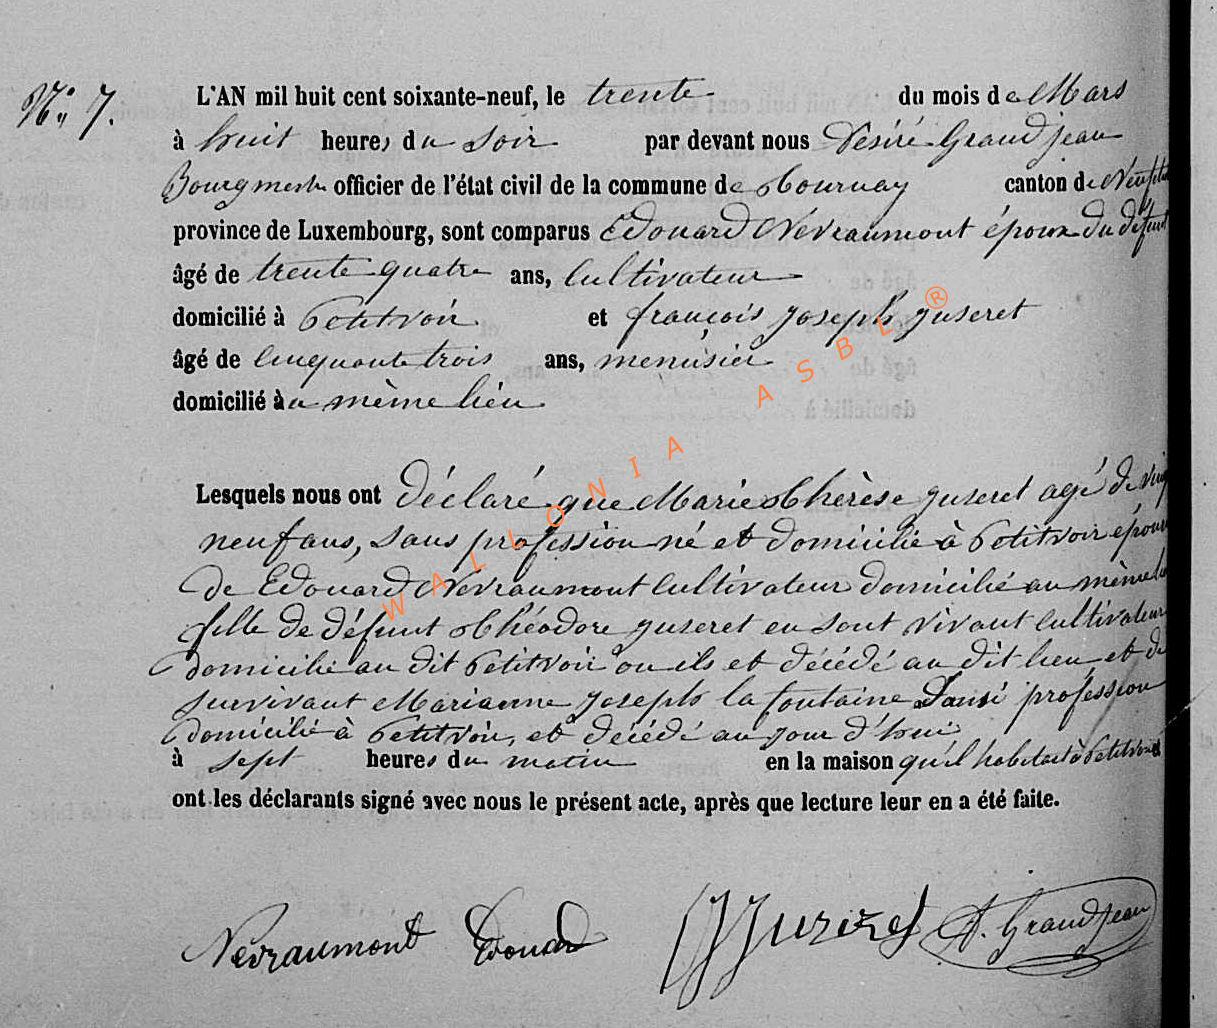 Nº 7.
L'AN mil huit cent soixante-neuf, le trente du mois de Mars
à huit heures du soir par devant nous Désiré Grandjean
Bourgmestre officier de l'état civil de la commune de Tournay canton de Neufch
province de Luxembourg, sont comparus Edouard Névraumont époux du défunt
âgé de trente quatre ans, Cultivateur
domicilié à Petitvoir et françois Joseph Juseret
âgé de Cinquante trois ans, menusier
domicilié au même lieu
Lesquels nous ont déclaré que Marie Thérèse Juseret agé de ving
neuf ans, sans profession né et domicilié à Petitvoir épouse
de Edouard Nevraumont Cultivateur domicilié au même lie
fille de défunt Théodore Juseret en sont vivant cultivateur
domicilié au dit Petitvoir ou ils et décédé au dit lieu et de
survivant Marianne Joseph la fontaine Sansé profession
domicilié à Petitvoir, et decédé au jour d'hui
à sept heures du matin en la maison qu'il habitait à Petitvoir
ont les déclarants signé avec nous le présent acte, après que lecture leur en a été faite.
Névraumont Edouard JJuzeret D. Grandjean
WALLONIA ASBL ®